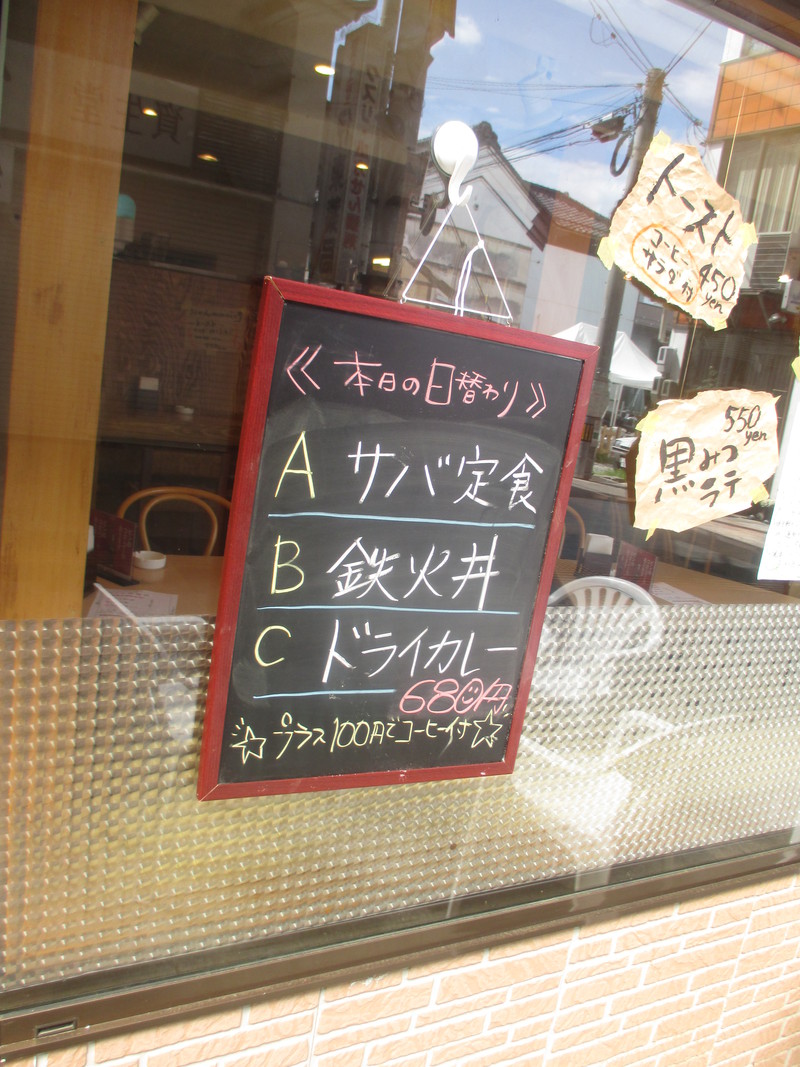 ≪ 本日の日替わり ≫
A サバ定食
B 鉄火丼
C ドライカレー
680円
☆ プラス100円でコーヒー付 ☆
トースト
コーヒー
サラダ付
450
yen
550
yen
黒みつ
ラテ